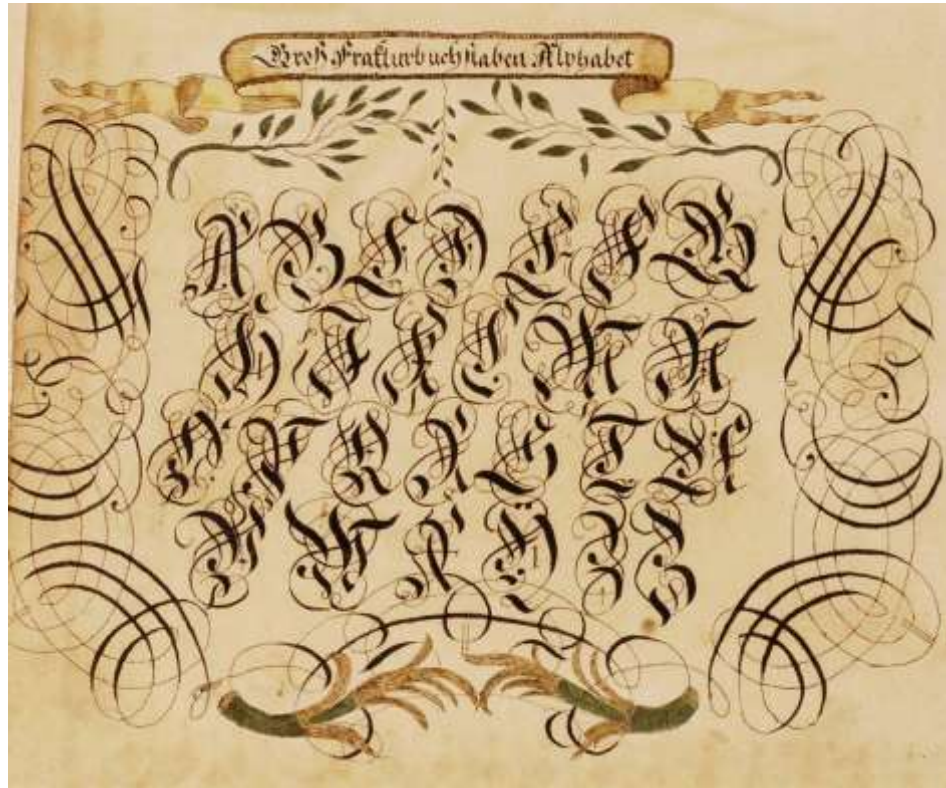 Groß Frakturbuchstaben Alphabet
A B C D E F G
H I K L M N
O P Q R S T U
V W X Y Z Z